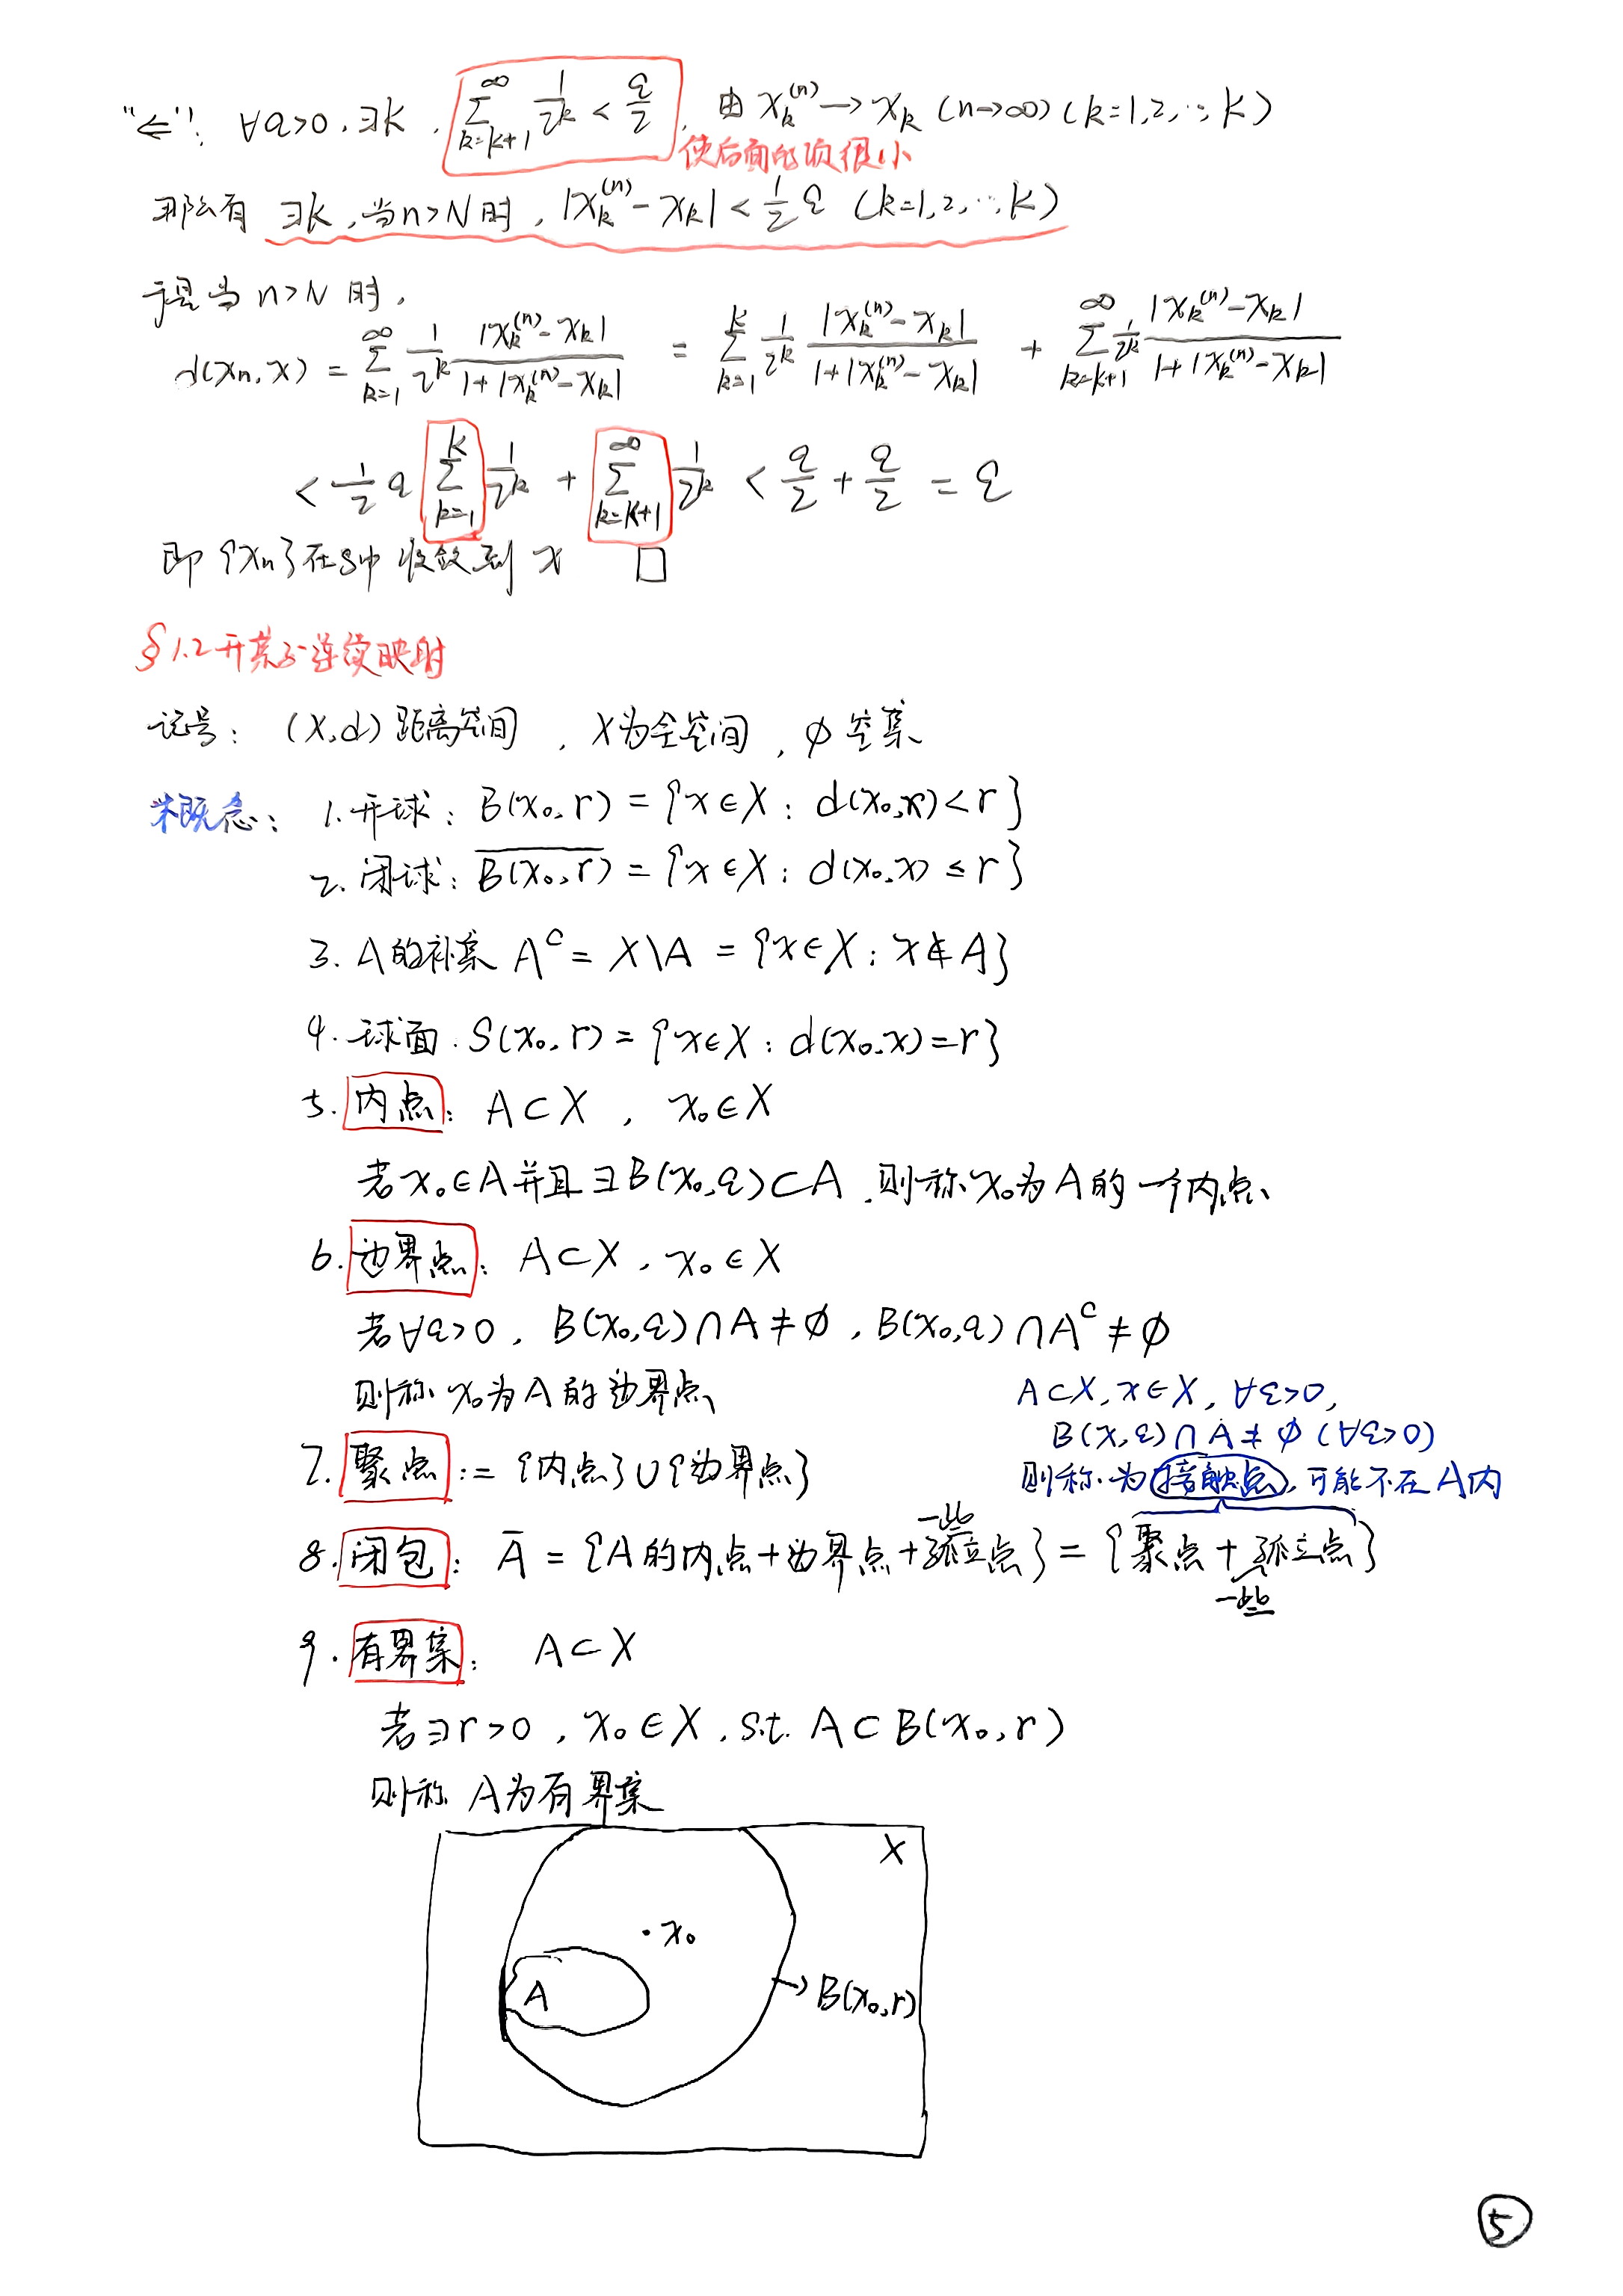 "⇐": ∀ε>0, ∃K, ∑_{k=K+1}^{∞} 1/2^k < ε/2, 由 x_k^{(n)} → x_k (n→∞) (k=1,2,…,K)
使后面的项很小
那么有 ∃K, 当n>N时, |x_k^{(n)} - x_k| < 1/2 ε (k=1,2,…,K)
于是当 n>N 时,
d(x_n, x) = ∑_{k=1}^{∞} 1/2^k |x_k^{(n)} - x_k| / (1+|x_k^{(n)} - x_k|) = ∑_{k=1}^{K} 1/2^k |x_k^{(n)} - x_k| / (1+|x_k^{(n)} - x_k|) + ∑_{k=K+1}^{∞} 1/2^k |x_k^{(n)} - x_k| / (1+|x_k^{(n)} - x_k|)
< 1/2 ε ∑_{k=1}^{K} 1/2^k + ∑_{k=K+1}^{∞} 1/2^k < ε/2 + ε/2 = ε
即 {x_n} 在S中 收敛到 x □
§1.2 开集与连续映射
记号: (X,d) 距离空间, X为全空间, ∅ 空集
概念: 1. 开球: B(x₀, r) = {x∈X: d(x₀,x)<r}
2. 闭球: \overline{B(x₀, r)} = {x∈X: d(x₀,x) ≤ r}
3. A的补集 A^c = X\A = {x∈X: x∉A}
4. 球面. S(x₀, r) = {x∈X: d(x₀,x)=r}
5. 内点: A⊂X, x₀∈X
若 x₀∈A 并且 ∃B(x₀,ε)⊂A, 则称 x₀为A的一个内点、
6. 边界点: A⊂X, x₀∈X
若∀ε>0, B(x₀,ε)∩A≠∅, B(x₀,ε)∩A^c≠∅
则称 x₀为A的边界点
A⊂X, x∈X, ∀ε>0,
B(x,ε)∩A≠∅ (∀ε>0)
则称为接触点, 可能不在A内
7. 聚点 := {内点}∪{边界点}
一些
8. 闭包: Ā = {A的内点+边界点+孤立点} = {聚点+孤立点}
一些
9. 有界集: A⊂X
若∃r>0, x₀∈X, s.t. A⊂B(x₀, r)
则称 A为有界集
X
·x₀
A
→B(x₀,r)
5